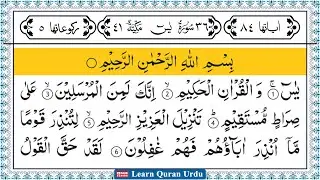 اٰیاتها ٨٤ ٣٦ سُوْرَةُ یٰسٓ مَكِّيَّةٌ ٤١ رکوعاتها ٥
بِسْمِ اللّٰهِ الرَّحْمٰنِ الرَّحِيْمِ
يٰسٓ ۝١ وَ الْقُرْاٰنِ الْحَكِيْمِ ۝٢ اِنَّكَ لَمِنَ الْمُرْسَلِيْنَ ۝٣ عَلٰى
صِرَاطٍ مُّسْتَقِيْمٍ ۝٤ تَنْزِيْلَ الْعَزِيْزِ الرَّحِيْمِ ۝٥ لِتُنْذِرَ قَوْمًا
مَّاۤ اُنْذِرَ اٰبَآؤُهُمْ فَهُمْ غٰفِلُوْنَ ۝٦ لَقَدْ حَقَّ الْقَوْلُ
Learn Quran Urdu